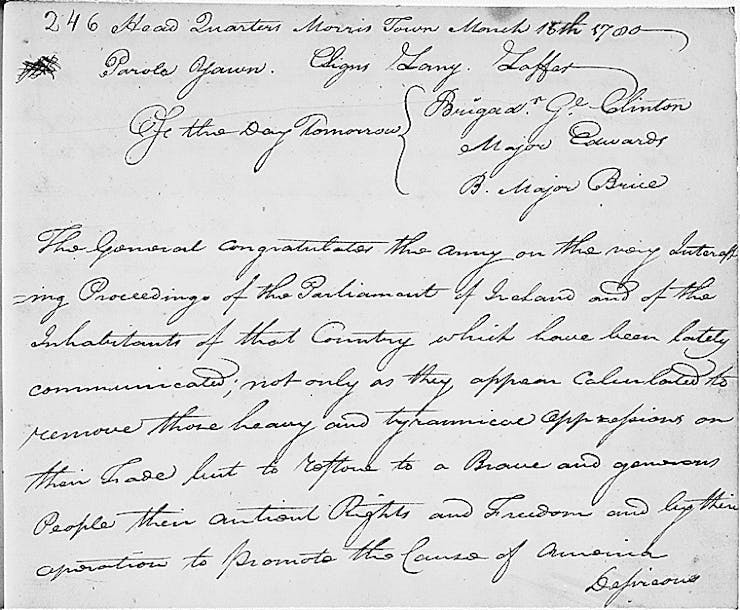 246 Head Quarters Morris Town March 16th 1780
Parole Yawn. C Signs Lary. Laffer
Of the Day Tomorrow { Brigadr. Gl. Clinton
Major Edwards
B. Major Brice
The General congratulates the army on the very Interest
=ing Proceedings of the Parliament of Ireland and of the
Inhabitants of that Country which have been lately
communicated; not only as they appear Calculated to
remove those heavy and tyrannical oppressions on
their Trade but to restore to a Brave and generous
People their antient Rights and Freedom and by their
operation to promote the Cause of America
Desireous